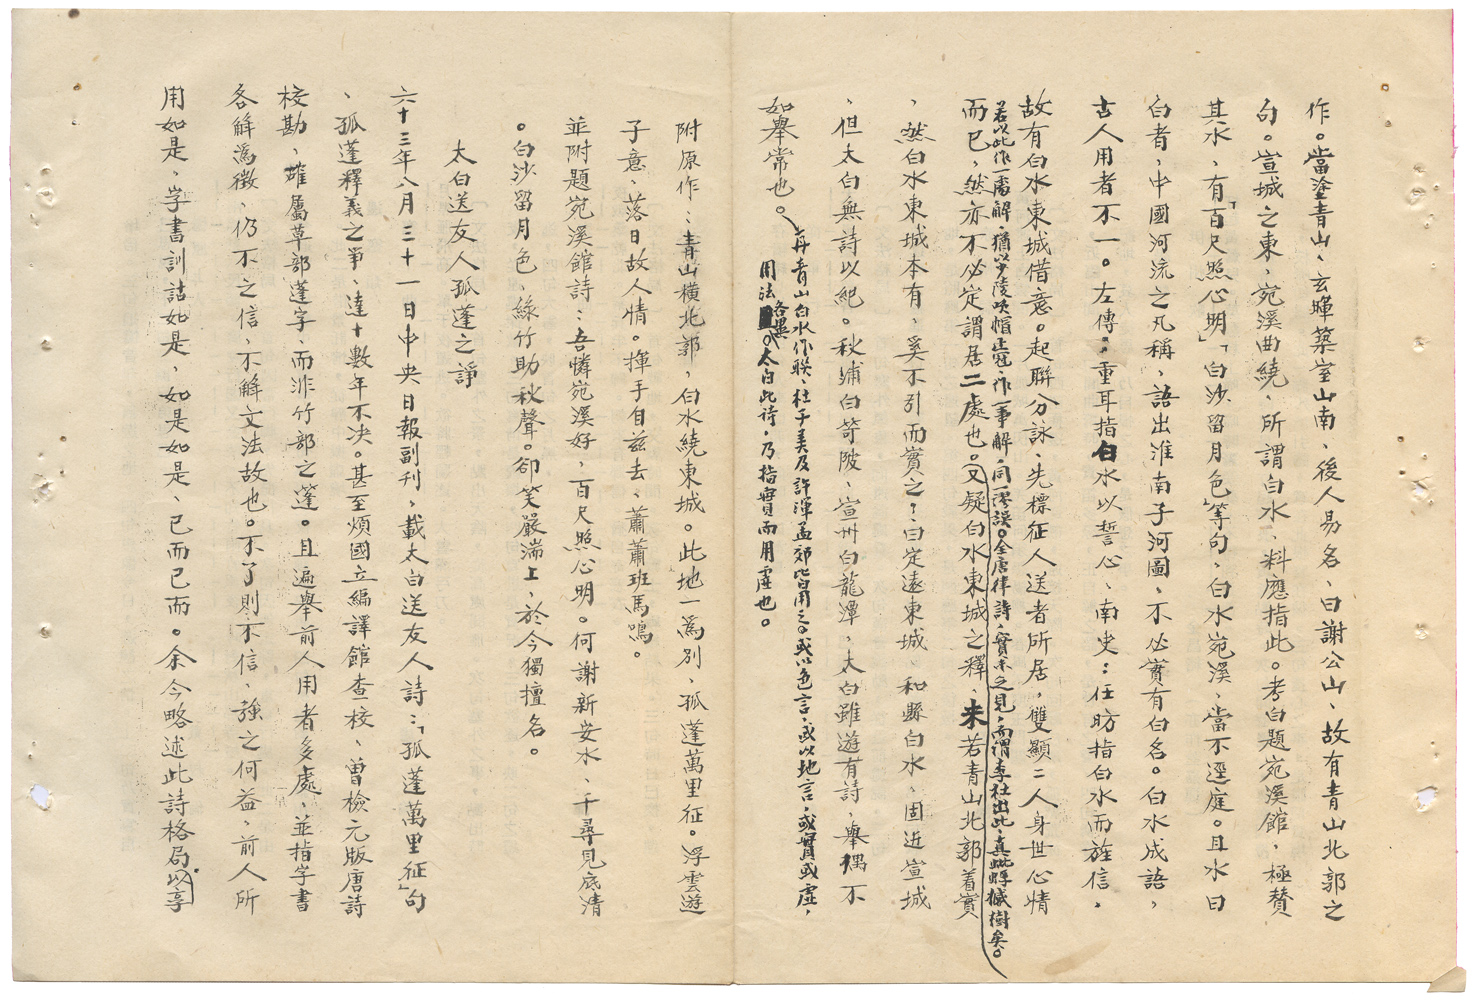 作。當塗青山、玄暉築室山南、後人易名、曰謝公山、故有青山北郭之
句。宣城之東、宛溪曲繞、所謂白水、料應指此。考白題宛溪館、極贊
其水、有「百尺照心明」「白沙留月色」等句、白水宛溪、當不逕庭。且水曰
白者，中國河流之凡稱，語出淮南子河圖、不必實有白名。白水成語，
古人用者不一。左傳：重耳指白水以誓心、南史：任昉指白水而旌信，
故有白水東城借意。起聯分詠、先標征人送者所居，雙顯二人身世心情
若以此作一番解，猶以少陵吹帽正冠，作一事解，同一謬誤。全唐律詩，實未之見，而謂李杜出此，真蚍蜉撼樹矣。
而已，然亦不必定謂居二處也。又疑白水東城之釋，未若青山北郭着實
、然白水東城本有、奚不引而實之？曰定遠東城、和縣白水、固近宣城
、但太白無詩以紀。秋浦白笴陂、宣州白龍潭，太白雖遊有詩，舉偶不
如舉常也。再青山白水作聯、杜子美及許渾孟郊皆用之。或以色言，或以地言，或實或虛，
用法各異。太白此詩，乃指實而用虛也。
附原作：青山橫北郭，白水繞東城。此地一爲別，孤蓬萬里征。浮雲遊
子意、落日故人情。揮手自茲去、蕭蕭班馬鳴。
並附題宛溪館詩：吾憐宛溪好，百尺照心明。何謝新安水，千尋見底清
。白沙留月色、綠竹助秋聲。卻笑嚴湍上、於今獨擅名。
太白送友人孤蓬之諍
六十三年八月三十一日中央日報副刊，載太白送友人詩：「孤蓬萬里征」句
、孤蓬釋義之爭、達十數年不決。甚至煩國立編譯館查校、曾檢元版唐詩
校勘、確屬草部蓬字、而非竹部之篷。且遍舉前人用者多處、並指字書
各解爲徵、仍不之信、不解文法故也。不了則不信、強之何益，前人所
用如是、字書訓詁如是，如是如是、已而已而。余今略述此詩格局以享